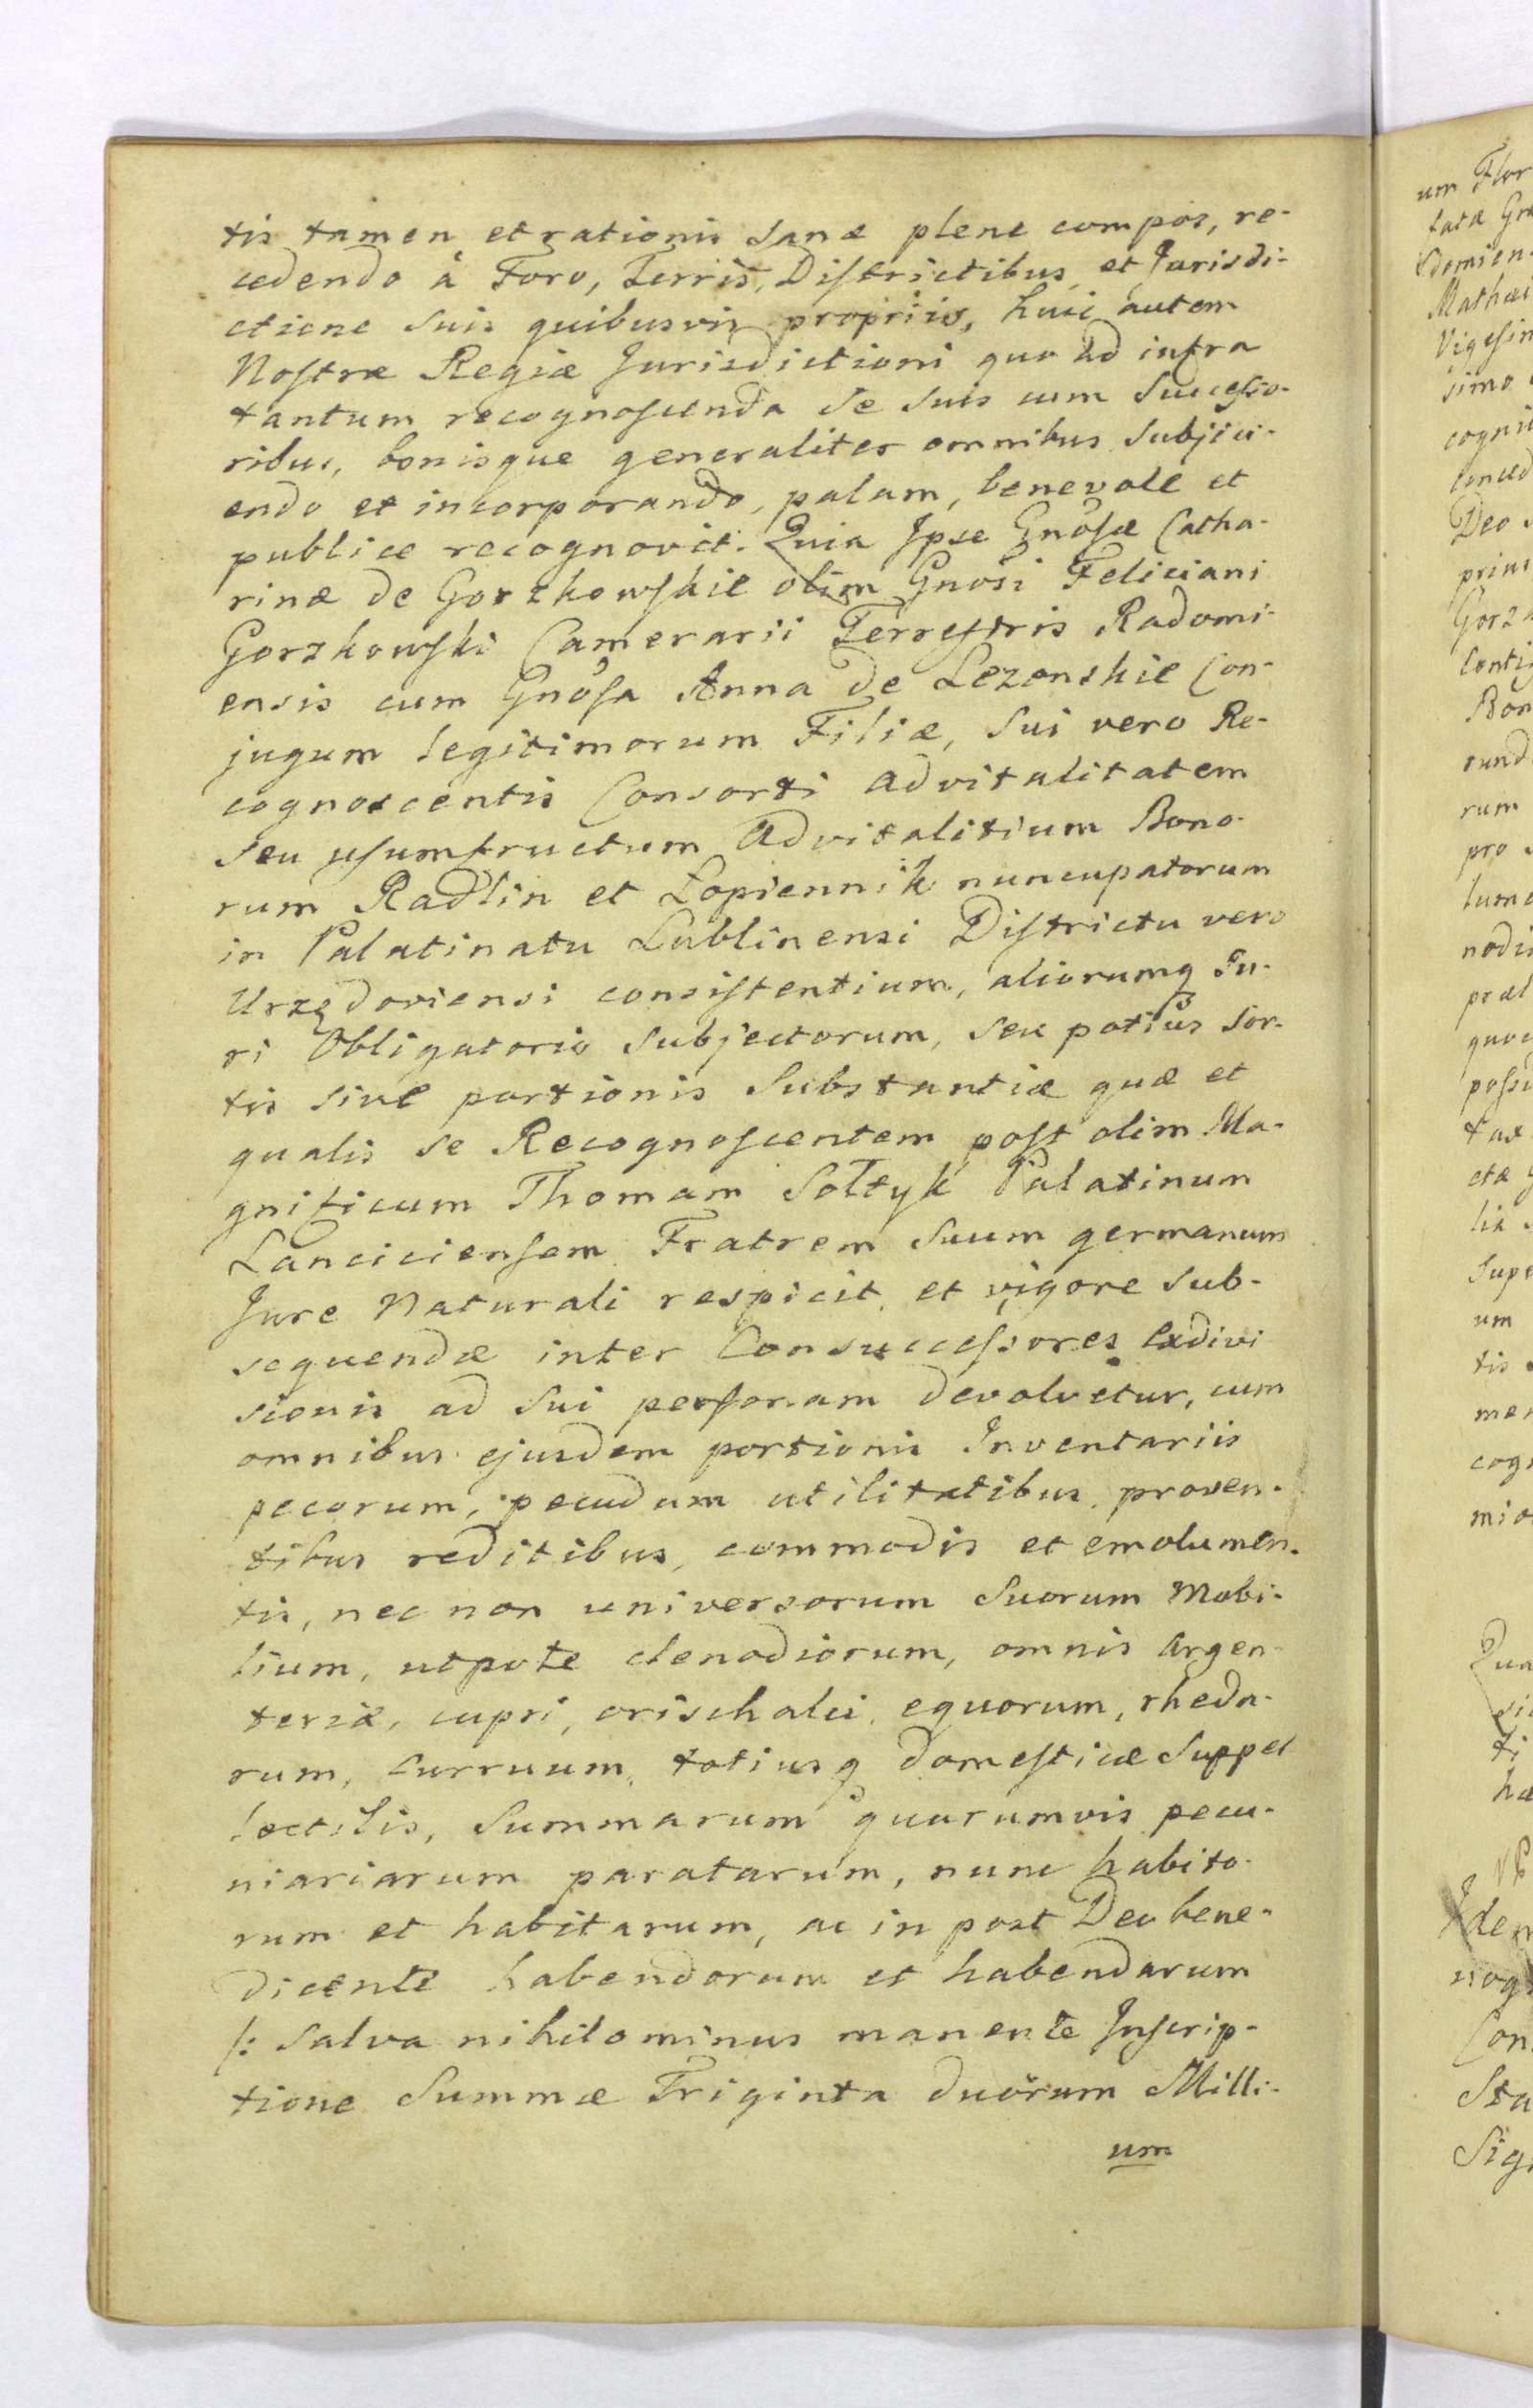 tis tamen et rationis sanæ plene compos, re-
cedendo à Foro, Terris, Districtibus et Jurisdi-
ctione suis quibusvis propriis, huic autem
Nostræ Regiæ Jurisdictioni quo ad infra
tantum recognoscenda se suis cum Successo-
ribus, bonisque generaliter omnibus subjici-
endo et incorporando, palam, benevole et
publice recognovit. Quia Ipse Gnosæ Catha-
rinæ de Gorzkowskie olim Gnosi Feliciani
Gorzkowski Camerarii Terrestris Radomi-
ensis cum Gnosa Anna de Lezenskie Con-
jugum legitimorum Filiæ, Sui vero Re-
cognoscentis Consorti advitalitatem
seu usumfructum Advitalitium Bono-
rum Radlin et Łopiennik nuncupatorum
in Palatinatu Lublinensi Districtu vero
Urzędoviensi consistentium, aliorumq Ju-
ri Obligatorio subjectorum, seu potiùs sor-
tis sive portionis Substantiæ quæ et
qualis se Recognoscentem post olim Ma-
gnificum Thomam Sołtyk Palatinum
Lanciciensem Fratrem suum germanum
Jure Naturali respicit, et vigore sub-
sequendæ inter Consuccessores exdivi
sionis ad sui personam devolvetur, cum
omnibus ejusdem portionis Inventariis
pecorum, pecudum utilitatibus, proven-
tibus reditibus, commodis et emolumen-
tis, nec non universorum suorum Mobi-
lium, utpote clenodiorum, omnis argen-
teriæ, cupri, orischalci, equorum, rheda-
rum, curruum, totiusq domesticæ Suppel
lectilis, Summarum quarumvis pecu-
niariarum paratarum, nunc habito-
rum et habitarum, ac in post Deo bene-
dicente habendorum et habendarum
/: salva nihilominus manente Inscrip-
tione Summæ Triginta duorum Milli-
um